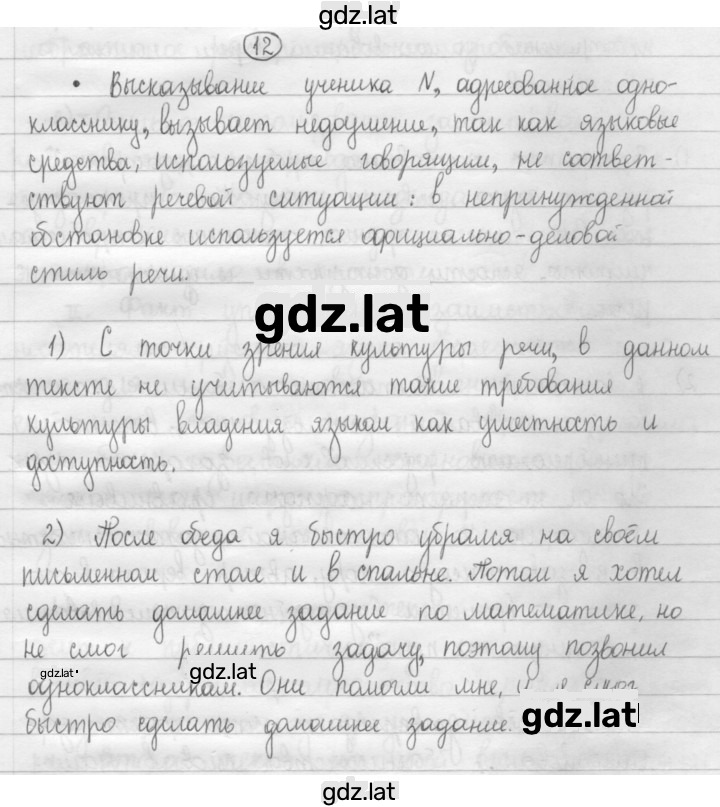 gdz.lat
12
• Высказывание ученика N, адресованное одно-
класснику, вызывает недоумение, так как языковые
средства, используемые говорящим, не соответ-
ствуют речевой ситуации: в непринужденной
обстановке используется официально-деловой
стиль речи.
gdz.lat
1) С точки зрения культуры речи, в данном
тексте не учитываются такие требования
культуры владения языком как уместность и
доступность.
2) После обеда я быстро убрался на своём
письменном столе и в спальне. Потом я хотел
сделать домашнее задание по математике, но
не смог решить задачу, поэтому позвонил
gdz.lat gdz.lat
одноклассникам. Они помогли мне, и я смог
быстро сделать домашнее задание.
gdz.lat
gdz.lat